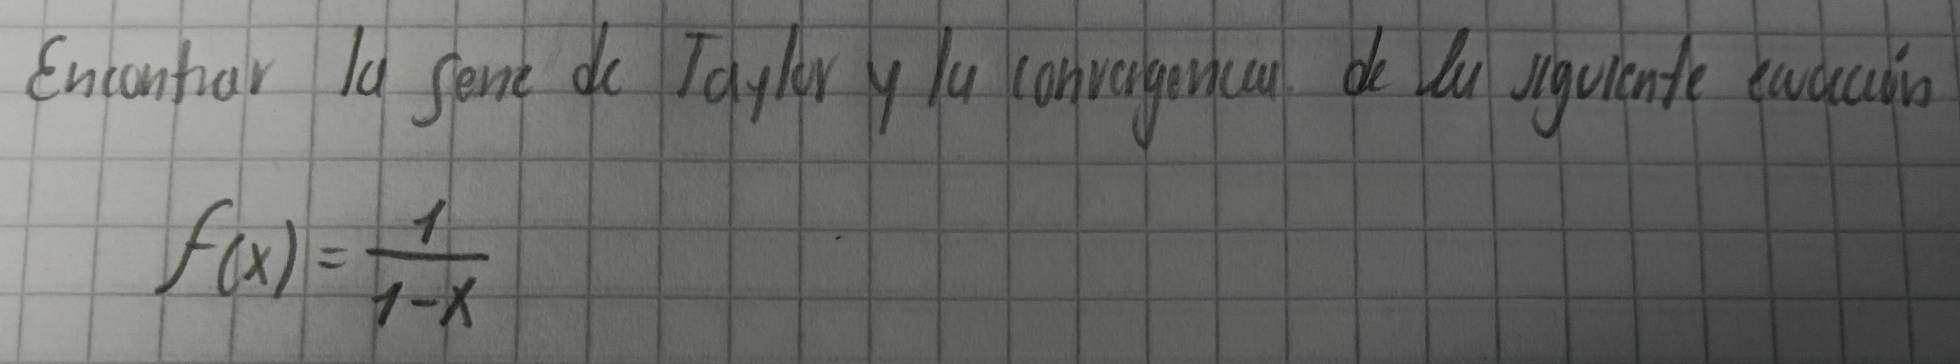 Encontrar la serie de Taylor y la convergencia de la siguiente ewación
f(x) = 1/(1-x)